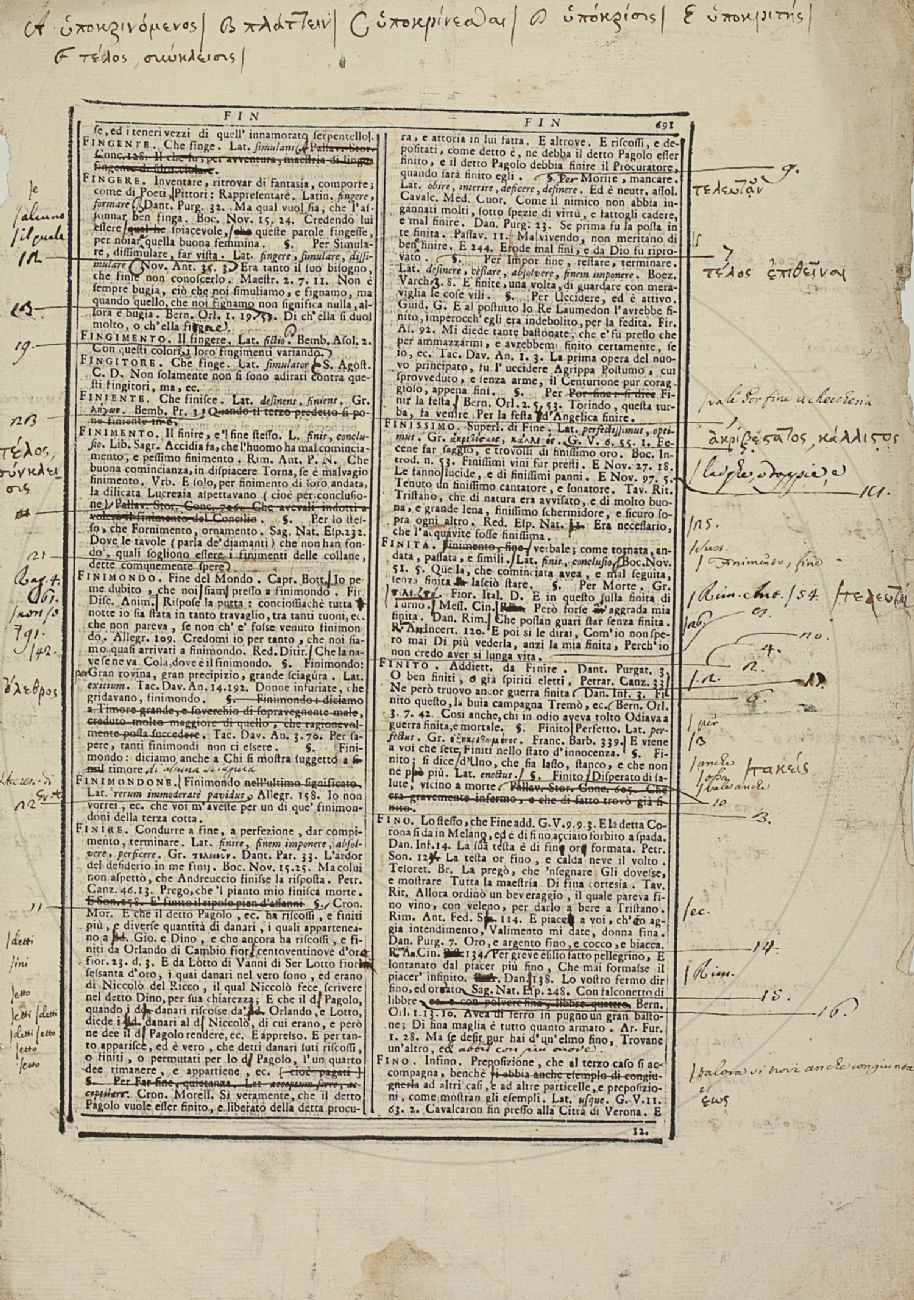 A ὑποκρινόμενος | B πλάττειν | C ὑποκρίνεσθαι | D ὑπόκρισις | E ὑποκριτής |
F τέλος, σύγκλεισις |
FIN
FIN 691
se, ed i teneri vezzi di quell' innamorato serpentello.
FINGENTE. Che finge. Lat. simulans. Pallav. Stor.
Conc. 128. Il che fu, per avventura, maestria di lingua
fingente di
FINGERE. Inventare, ritrovar di fantasia, comporre;
come di Poeti, Pittori; Rappresentare. Latin. fingere,
formare. Dant. Purg. 32. Ma qual vuol sia, che l'as-
sonnar ben finga. Boc. Nov. 15. 24. Credendo lui
essere qual he spiacevole, che queste parole fingesse,
per noiar quella buona femmina. §. Per Simula-
re, dissimulare, far vista. Lat. fingere, simulare, dissi-
mulare. Nov. Ant. 35. 3. Era tanto il suo bisogno,
che finse non conoscerlo. Maestr. 2. 7. 11. Non è
sempre bugia, ciò che noi simuliamo, e fignamo, ma
quando quello, che noi fignamo non significa nulla, al-
lora è bugia. Bern. Orl. 1. 19. 53. Di ch'ella si duol
molto, o ch'ella fignere.
FINGIMENTO. Il fingere. Lat. fictio. Bemb. Asol. 2.
Con questi colori, i loro fingimenti variando.
FINGITORE. Che finge. Lat. simulator. S. Agost.
C. D. Non solamente non si sono adirati contra que-
sti fingitori, ma, ec.
FINIENTE. Che finisce. Lat. desinens, finiens, Gr.
λήγων. Bemb. Pr. 3. Quando il terzo predetto si po-
ne finiente in e.
FINIMENTO. Il finire, e 'l fine stesso. L. finis, conclu-
sio. Lib. Sagr. Accidia fa, che l'huomo ha mal comincia-
mento, e pessimo finimento. Rim. Ant. P. N. Che
buona comincianza, in dispiacere Torna, se è malvagio
finimento. Vrb. E solo, per finimento di loro andata,
la dilicata Lucrezia aspettavano (cioè per conclusio-
ne) Pallav. Stor. Conc. 706. Che avevali indotti a
volere il finimento del Concilio. §. Per lo stes-
so, che Fornimento, ornamento. Sag. Nat. Esp. 232.
Dove le tavole (parla de' diamanti) che non han fon-
do, quali sogliono essere i finimenti delle collane,
dette comunemente spere.
FINIMONDO. Fine del Mondo. Capr. Bott. Io pe-
me dubito, che noi siam presso a finimondo. Fir.
Dise. Anim. Rispose la putta: conciossiachè tutta
notte io sia stata in tanto travaglio, tra tanti tuoni, ec.
che non pareva, se non ch' e' fosse venuto finimon-
do. Allegr. 109. Credomi io per tanto, che noi sia-
mo quasi arrivati a finimondo. Red. Ditir. Che la na-
ve se ne va Colà, dove è il finimondo. §. Finimondo:
Gran rovina, gran precipizio, grande sciagura. Lat.
exitium. Tac. Dav. An. 14. 192. Donne infuriate, che
gridavano, finimondo. §. Finimondo: diciamo
a Timore grande, e soverchio di sopravegnente male,
creduto molto maggiore di quello, che ragionevol-
mente possa succedere. Tac. Dav. An. 3. 70. Per sa-
pere, tanti finimondi non ci essere. §. Fini-
mondo: diciamo anche a Chi si mostra suggetto a
timore
FINIMONDONE. Finimondo nell'ultimo significato.
Lat. rerum immoderate pavidus. Allegr. 158. Io non
vorrei, ec. che voi m'aveste per un di que' finimon-
doni della terza cotta.
FINIRE. Condurre a fine, a perfezione, dar compi-
mento, terminare. Lat. finire, finem imponere, absol-
vere, perficere. Gr. τελειοῦν. Dant. Par. 33. L'ardor
del desiderio in me finij. Boc. Nov. 15. 25. Ma colui
non aspettò, che Andreuccio finisse la risposta. Petr.
Canz. 46. 13. Prego, che 'l pianto mio finisca morte.
E Son. 158. E' finito il ripolo pien d'affanni §. Cron.
Mor. E che il detto Pagolo, ec. ha riscossi, e finiti
più, e diverse quantità di danari, i quali appartenea-
no a Gio. e Dino, e che ancora ha riscossi, e fi-
niti da Orlando di Cambio fior. centoventinove d'oro
fior. 23. d. 3. E da Lotto di Vanni di Ser Lotto fiorin
sessanta d'oro, i quai danari nel vero sono, ed erano
di Niccolò del Ricco, il qual Niccolò fece scrivere
nel detto Dino, per sua chiarezza; E che il d. Pagolo,
quando i danari riscosse da Orlando, e Lotto,
diede i danari al d. Niccolò, di cui erano, e però
ne dee il d. Pagolo rendere, ec. E appresso. E per tan-
to apparisce, ed è vero, che detti danari suti riscossi,
o finiti, o permutati per lo d. Pagolo, l'un quarto
dee rimanere, e appartiene, ec. (cioè pagati)
§. Per Far fine, quietanza. Lat. acceptum ferre, ac-
ceptilare. Cron. Morell. Sì veramente, che il detto
Pagolo vuole esser finito, e liberato della detta procu-
ra, e attoria in lui fatta. E altrove. E riscossi, e de-
positati, come detto è, ne debba il detto Pagolo esser
finito, e il detto Pagolo debba finire il Procuratore,
quando sarà finito egli. §. Per Morire, mancare.
Lat. obire, interire, deficere, desinere. Ed è neutr. assol.
Cavalc. Med. Cuor. Come il nimico non abbia in-
gannati molti, sotto spezie di virtù, e fattogli cadere,
e mal finire. Dan. Purg. 23. Se prima fu la possa in
te finita. Passav. 11. Ma vivendo, non meritano di
ben finire. E 244. Erode mal finì, e da Dio fu ripro-
vato. §. Per Impor fine, restare, terminare.
Lat. desinere, cessare, absolvere, finem imponere. Boez.
Varch. 3. 8. E finite, una volta, di guardare con mera-
viglia le cose vili. §. Per Uccidere, ed è attivo.
Guid. G. E al postutto lo Re Laumedon l'avrebbe fi-
nito, imperocch' egli era indebolito, per la fedita. Fir.
As. 92. Mi diede tante bastonate, che e' fu presso che
per ammazzarmi, e avrebbemi finito certamente, se
io, ec. Tac. Dav. An. 1. 3. La prima opera del nuo-
vo principato, fu l'uccidere Agrippa Postumo, cui
sprovveduto, e senza arme, il Centurione pur corag-
gioso, appena finì. §. Per Por fine: si dice Fi-
nir la festa. Bern. Orl. 2. 5. 53. Torindo, questa tur-
ba, fa venire Per la festa d'Angelica finire.
FINISSIMO. Superl. di Fine. Lat. perfectissimus, opti-
mus. Gr. ἀκριβέστατος, κάλλιστος. G. V. 6. 55. 1. Fe-
cene far saggio, e trovolli di finissimo oro. Boc. In-
trod. n. 53. Finissimi vini fur presti. E Nov. 27. 18.
Le fanno lucide, e di finissimi panni. E Nov. 97. 5.
Tenuto un finissimo cantatore, e sonatore. Tav. Rit.
Tristano, che di natura era avvisato, e di molto buo-
na, e grande lena, finissimo schermidore, e sicuro so-
pra ogni altro. Red. Esp. Nat. Era necessario,
che l'acquavite fosse finissima.
FINITA. Finimento, fine, verbale; come tornata, an-
data, passata, e simili. Lat. finis, conclusio. Boc. Nov.
51. 5. Quella, che cominciata avea, e mal seguita,
senza finita lasciò stare. §. Per Morte, Gr.
Fior. Ital. D. E in questo sulla finita di
Turno. Mess. Cin. Però forse m' aggrada mia
finita. Dan. Rim. Che possan guari star senza finita.
R. An. Incert. 120. E poi se le dirai, Com'io non spe-
ro mai Di più vederla, anzi la mia finita, Perch'io
non credo aver sì lunga vita.
FINITO. Addiett. da Finire. Dant. Purgat. 3.
O ben finiti, o già spiriti eletti. Petrar. Canz. 33
Ne però truovo ancor guerra finita. Dan. Inf. 3. Fi-
nito questo, la buia campagna Tremò, ec. Bern. Orl.
3. 7. 42. Così anche, chi in odio aveva tolto Odiava a
guerra finita, e mortale. §. Finito: Perfetto. Lat. per-
fectus. Gr. ἐξηκριβωμένος. Franc. Barb. 339. E viene
a voi che sete, Finiti nello stato d'innocenza. §. Fi-
nito; si dice d'Uno, che sia lasso, stanco, e che non
ne può più. Lat. enectus. §. Finito: Disperato di sa-
lute, vicino a morte. Pallav. Stor. Conc. 605. Che
era gravemente infermo, e che di fatto trovò già fi-
nito.
FINO. Lo stesso, che Fine add. G. V. 9. 9. 3. E la detta Co-
rona si dà in Melano, ed è di fino acciajo forbito a spada.
Dan. Inf. 14. La sua testa è di fino oro formata. Petr.
Son. 124. La testa or fino, e calda neve il volto.
Tesoret. Br. La pregò, che 'nsegnare Gli dovesse,
e mostrare Tutta la maestria Di fina cortesia. Tav.
Rit. Allora ordinò un beveraggio, il quale pareva fi-
no vino, con veleno, per darlo a bere a Tristano.
Rim. Ant. Fed. S. 114. E piace a voi, ch'eo ag-
gia intendimento, Valimento mi date, donna fina.
Dan. Purg. 7. Oro, e argento fino, e cocco, e biacca.
R. A. Cin. 134. Per greve esilio fatto pellegrino, E
lontanato dal piacer più fino, Che mai formasse il
piacer' infinito. Dan. 138. Lo vostro fermo dir
fino, ed orrato. Sag. Nat. Esp. 248. Con falconetto di
libbre ec. e con polvere fina, libbre quattro. Bern.
Orl. 1. 13. 10. Avea di ferro in pugno un gran basto-
ne; Di fina maglia è tutto quanto armato. Ar. Fur.
1. 28. Ma se desir pur hai d'un'elmo fino, Trovane
un'altro, ed abbil con più onore.
FINO. Infino. Preposizione, che al terzo caso si ac-
compagna, benchè si abbia anche esempio di congiu-
gnerla ad altri casi, e ad altre particelle, e preposizio-
ni, come mostran gli esempli. Lat. usque. G. V. 11.
63. 2. Cavalcaron fin presso alla Città di Verona. E
12.
il quale
19.
τέλος,
σύγκλει
σις
21
ὄλεθρος
22
11
detti
9.
τελευτᾶν
7
τέλος ἐπιθεῖναι
ἀκριβέστατος, κάλλιστος
finimento, fine
τελευτή
20.
4.
2.
6.
anche
10
3.
ec.
14.
Rim.
15.
16.
talora si trovi anche congiunta
ἕως